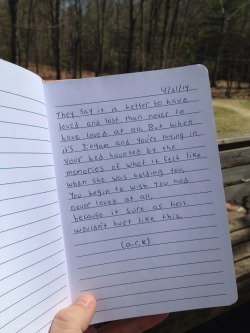 4/21/14
They say it is better to have
loved and lost than never to
have loved at all. But when
it's 3:04am and you're laying in
your bed haunted by the
memories of what it felt like
when she was holding you,
you begin to wish you had
never loved at all,
because it sure as hell
wouldn't hurt like this.
(a.c.k)